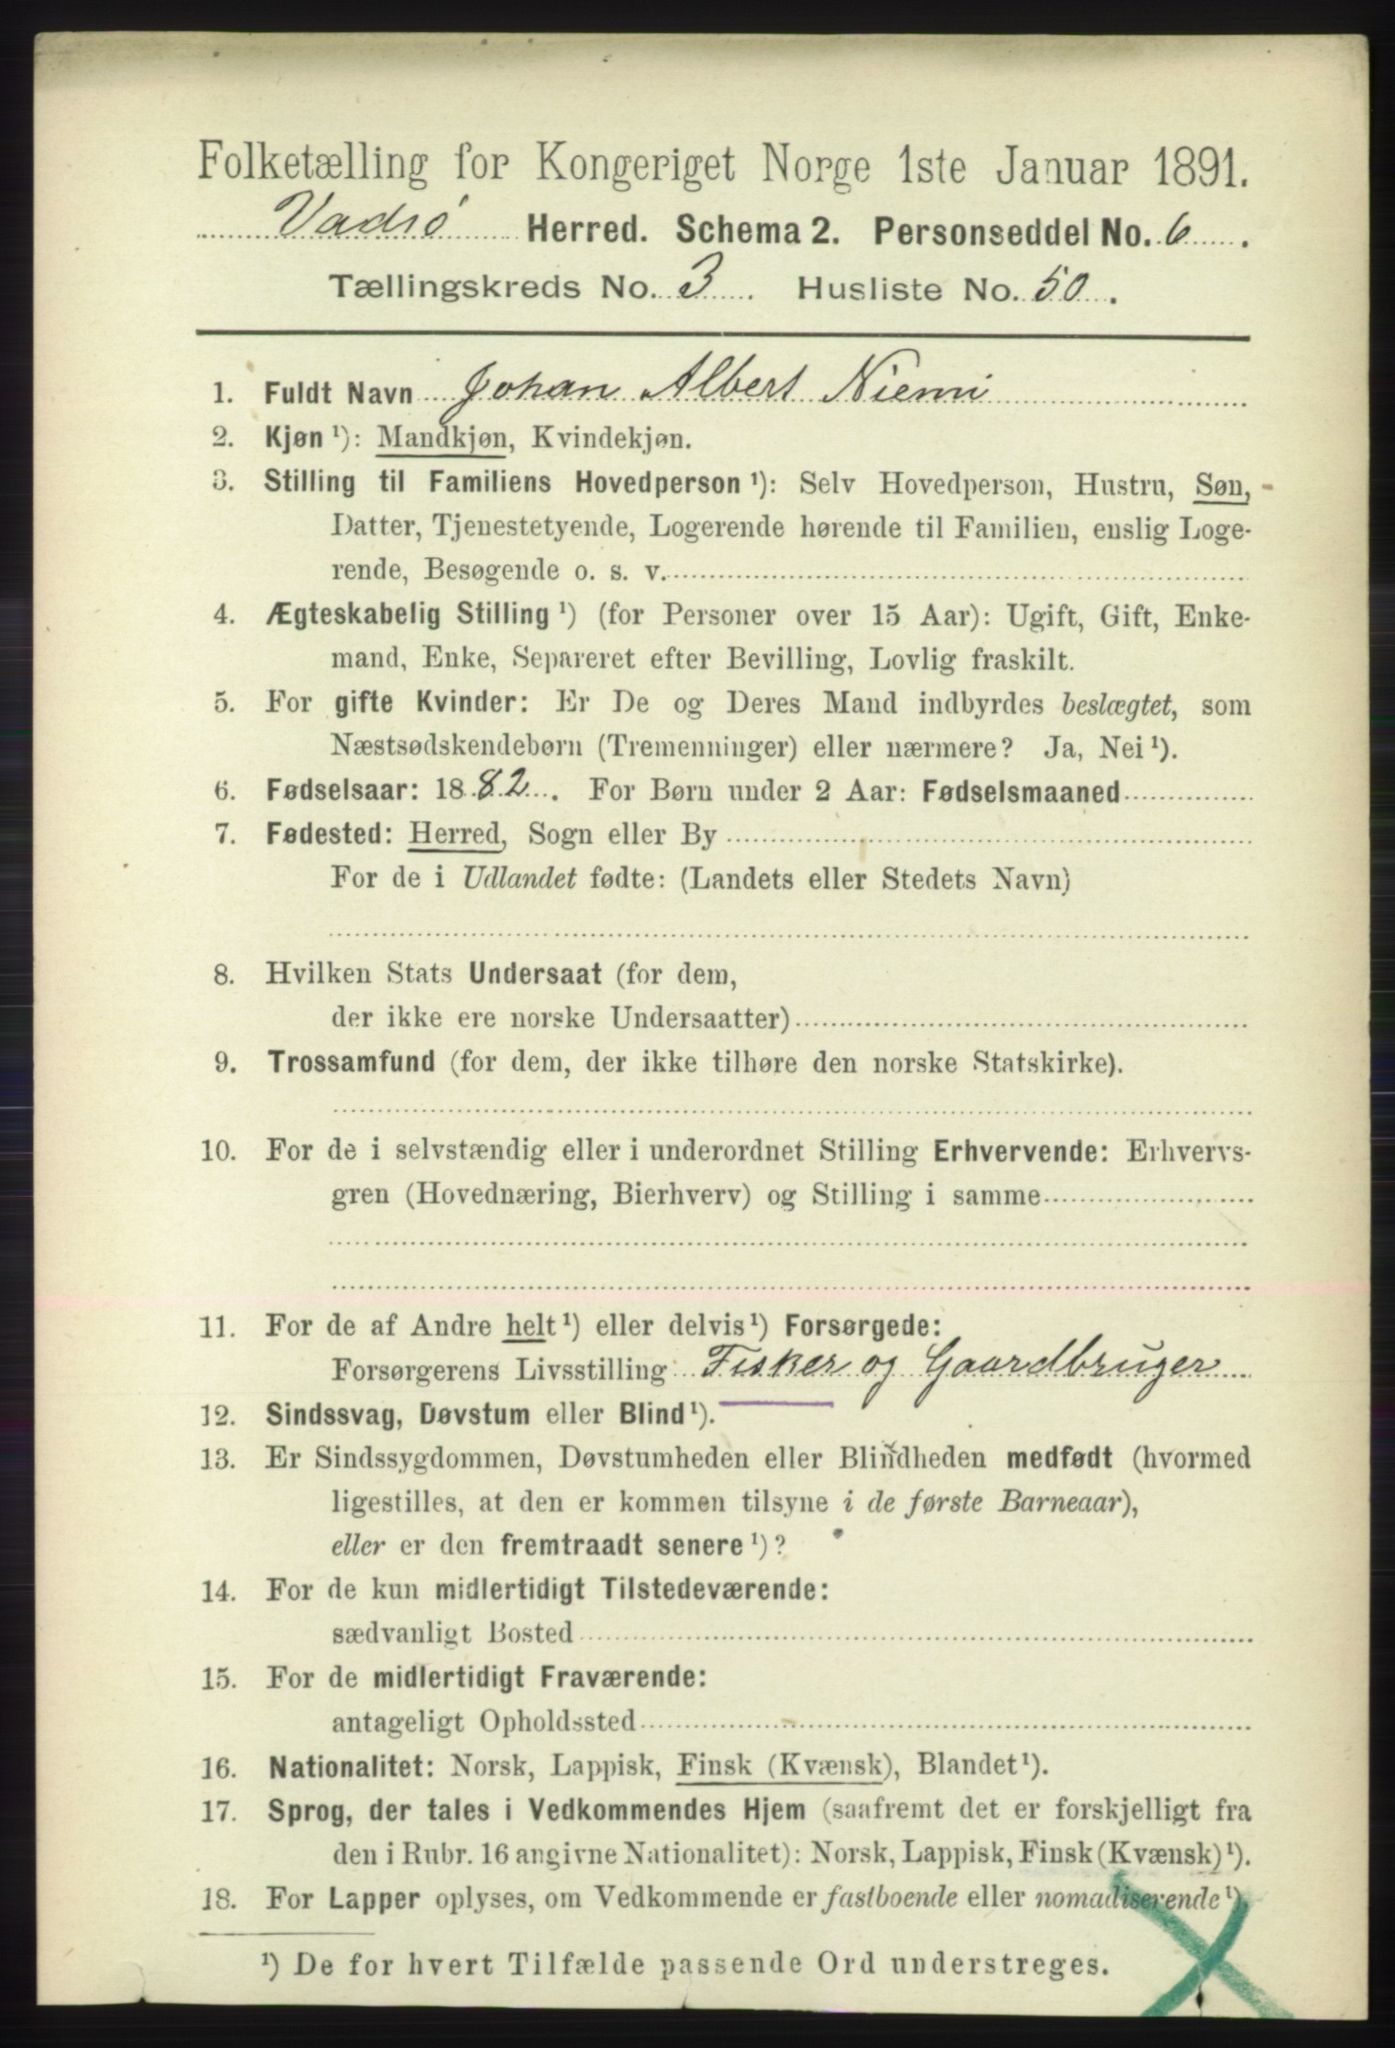 Folketælling for Kongeriget Norge 1ste Januar 1891.
Vadsö Herred. Schema 2. Personseddel No. 6.
Tællingskreds No. 3. Husliste No. 50.
1. Fuldt Navn Johan Albert Niemi
2. Kjøn ¹): Mandkjøn, Kvindekjøn.
3. Stilling til Familiens Hovedperson ¹): Selv Hovedperson, Hustru, Søn,
Datter, Tjenestetyende, Logerende hørende til Familien, enslig Loge-
rende, Besøgende o. s. v.
4. Ægteskabelig Stilling ¹) (for Personer over 15 Aar): Ugift, Gift, Enke-
mand, Enke, Separeret efter Bevilling, Lovlig fraskilt.
5. For gifte Kvinder: Er De og Deres Mand indbyrdes beslægtet, som
Næstsødskendebørn (Tremenninger) eller nærmere? Ja, Nei ¹).
6. Fødselsaar: 1882. For Børn under 2 Aar: Fødselsmaaned
7. Fødested: Herred, Sogn eller By
For de i Udlandet fødte: (Landets eller Stedets Navn)
8. Hvilken Stats Undersaat (for dem,
der ikke ere norske Undersaatter)
9. Trossamfund (for dem, der ikke tilhøre den norske Statskirke).
10. For de i selvstændig eller i underordnet Stilling Erhvervende: Erhvervs-
gren (Hovednæring, Bierhverv) og Stilling i samme
11. For de af Andre helt ¹) eller delvis ¹) Forsørgede:
Forsørgerens Livsstilling Fisker og Gaardbruger
12. Sindssvag, Døvstum eller Blind ¹).
13. Er Sindssygdommen, Døvstumheden eller Blindheden medfødt (hvormed
ligestilles, at den er kommen tilsyne i de første Barneaar),
eller er den fremtraadt senere ¹)?
14. For de kun midlertidigt Tilstedeværende:
sædvanligt Bosted
15. For de midlertidigt Fraværende:
antageligt Opholdssted
16. Nationalitet: Norsk, Lappisk, Finsk (Kvænsk), Blandet ¹).
17. Sprog, der tales i Vedkommendes Hjem (saafremt det er forskjelligt fra
den i Rubr. 16 angivne Nationalitet): Norsk, Lappisk, Finsk (Kvænsk) ¹).
18. For Lapper oplyses, om Vedkommende er fastboende eller nomadiserende ¹).
¹) De for hvert Tilfælde passende Ord understreges.